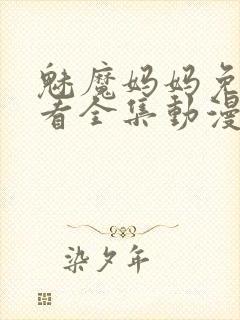 魅魔妈妈免
看全集動漫
染夕年